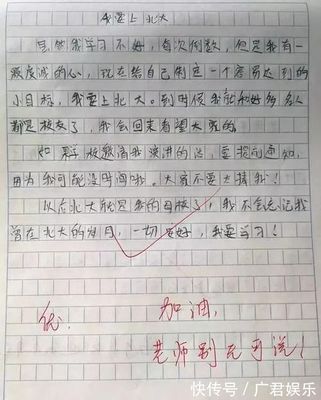 我要上北大
虽然我学习不好,每次倒数,但是我有一
颗虔诚的心,现在给自己制定一个容易达到的
小目标,我要上北大。到时候我就和好多名人
都是校友了,我会回来看望大家的。
如果学校邀请我演讲的话,要提前通知,
因为我可能没时间哦。大家不要太捧我!
以后北大就是我的母校了,我不会忘记我
曾在北大的岁月,一切安好,我要学习!
优.
加油,
老师别无可说!
快传号/广君娱乐